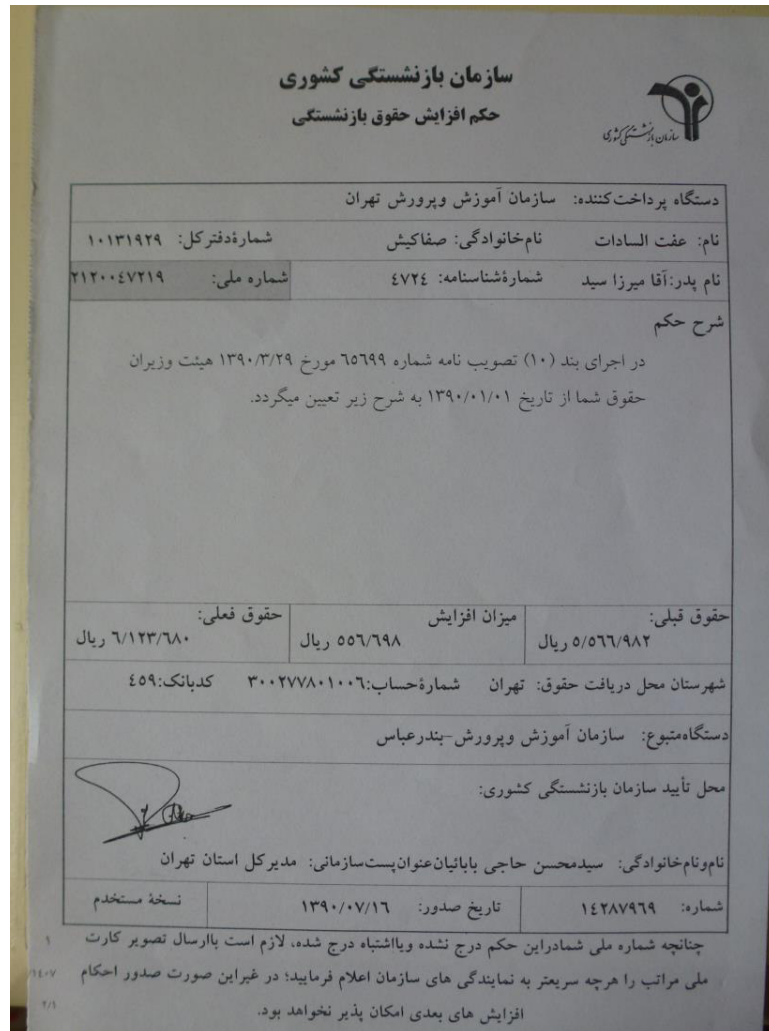 سازمان بازنشستگی کشوری
حکم افزایش حقوق بازنشستگی
سازمان بازنشستگی کشوری
دستگاه پرداخت‌کننده: سازمان آموزش وپرورش تهران
نام: عفت السادات نام‌خانوادگی: صفاکیش شمارهٔ‌دفترکل: ۱۰۱۳۱۹۲۹
نام پدر:آقا میرزا سید شمارهٔ‌شناسنامه: ٤٧٢٤ شماره ملی: ۲۱۲۰۰٤۷۲۱۹
شرح حکم
در اجرای بند (۱۰) تصویب نامه شماره ٦٥٦۹۹ مورخ ۱۳۹۰/۳/۲۹ هیئت وزیران
حقوق شما از تاریخ ۱۳۹۰/۰۱/۰۱ به شرح زیر تعیین میگردد.
حقوق قبلی: میزان افزایش حقوق فعلی:
٥/٥٦٦/۹۸۲ ریال ٥٥٦/٦۹۸ ریال ٦/۱۲۳/٦۸۰ ریال
شهرستان محل دریافت حقوق: تهران شمارهٔ‌حساب:۳۰۰۲۷۷۸۰۱۰۰٦ کدبانک:٤٥۹
دستگاه‌متبوع: سازمان آموزش وپرورش-بندرعباس
محل تأیید سازمان بازنشستگی کشوری:
نام‌ونام‌خانوادگی: سیدمحسن حاجی بابائیان‌عنوان‌پست‌سازمانی: مدیرکل استان تهران
شماره: ۱٤۲۸۷۹٦۹ تاریخ صدور: ۱۳۹۰/۰۷/۱٦ نسخهٔ مستخدم
چنانچه شماره ملی شمادراین حکم درج نشده ویااشتباه درج شده، لازم است باارسال تصویر کارت
۱
ملی مراتب را هرچه سریعتر به نمایندگی های سازمان اعلام فرمایید؛ در غیراین صورت صدور احکام
افزایش های بعدی امکان پذیر نخواهد بود.
۲/۱